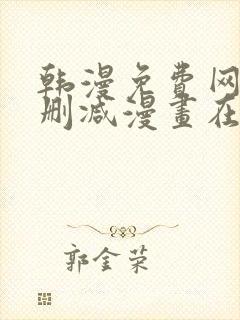 韩漫免费网
删减漫畫在
郭金荣